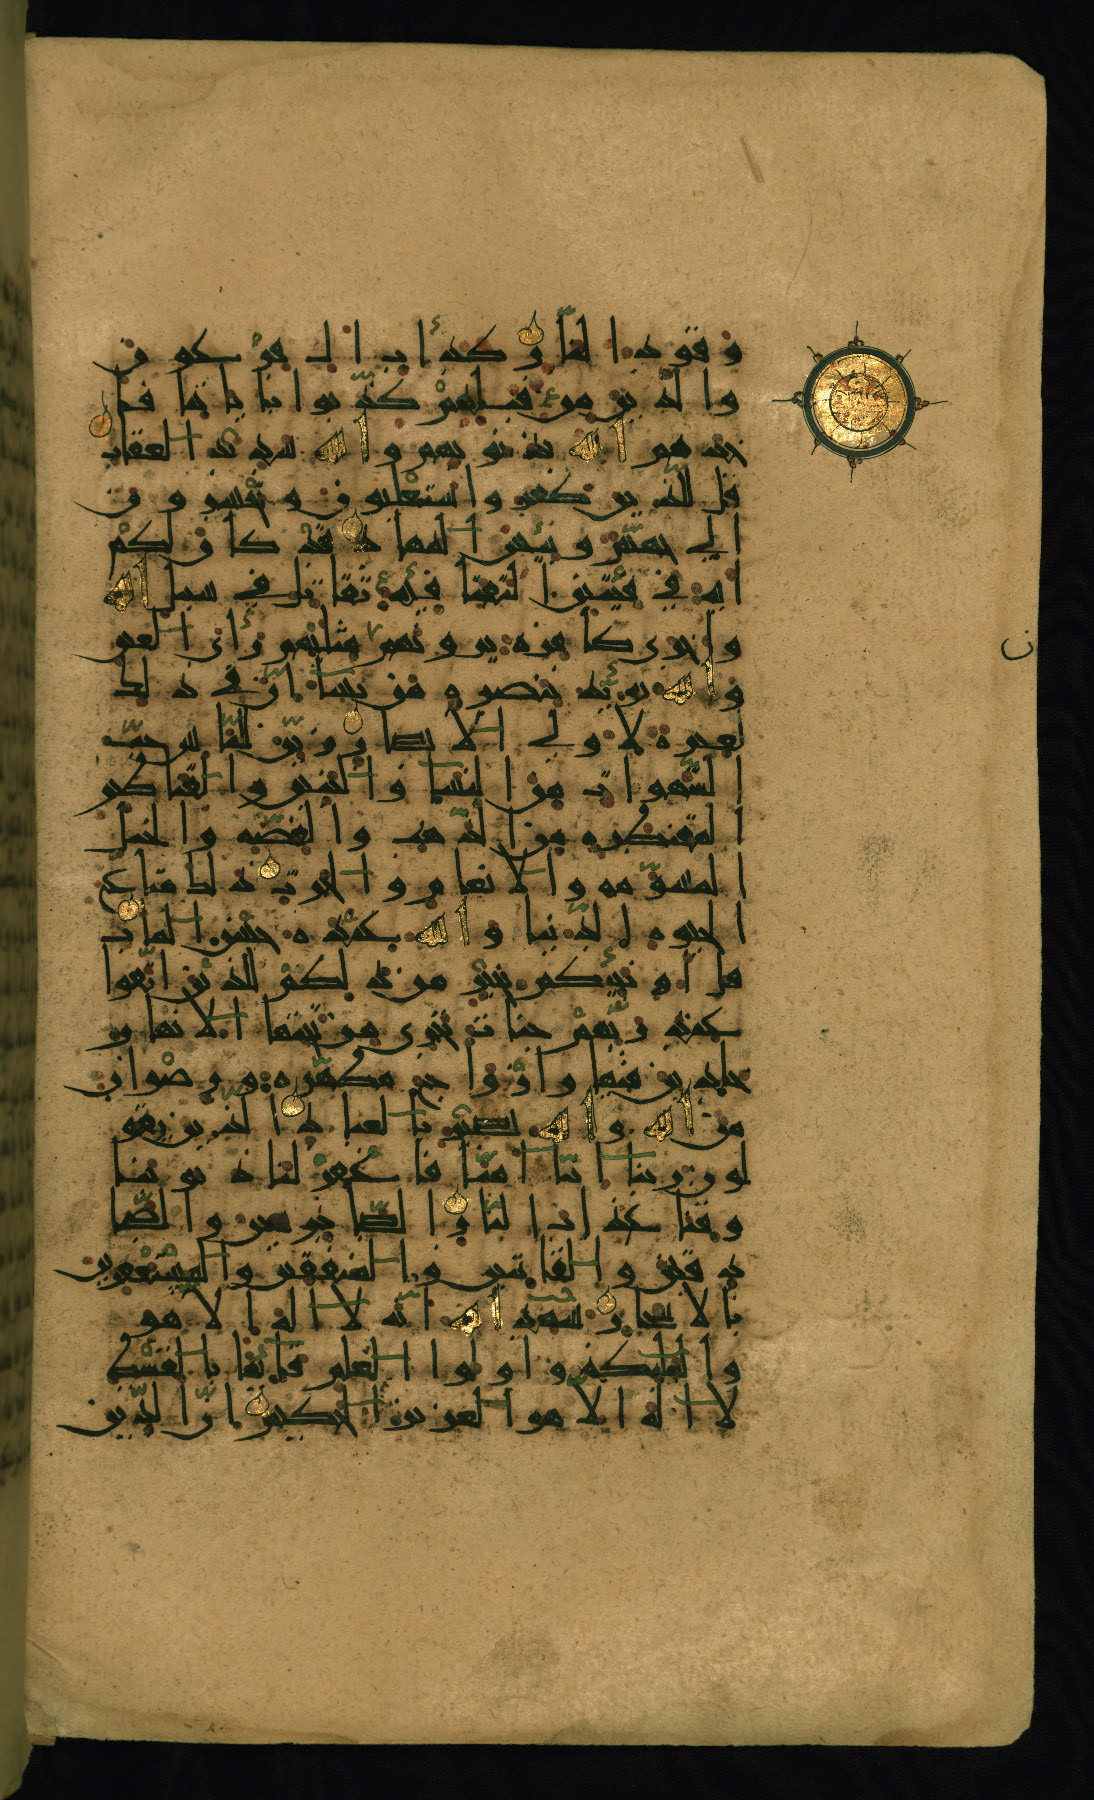 وقود النار كدأب ال فرعون
والذين من قبلهم كذبوا باياتنا فا
خذهم الله بذنوبهم والله شديد العقاب
قل للذين كفروا ستغلبون وتحشرون
الى جهنم وبئس المهاد قد كان لكم
اية في فئتين التقتا فئة تقاتل في سبيل الله
واخرى كافرة يرونهم مثليهم رأي العين
والله يؤيد بنصره من يشاء ان في ذلك
لعبرة لاولي الابصار زين للناس حب
الشهوات من النساء والبنين والقناطير
المقنطرة من الذهب والفضة والخيل
المسومة والانعام والحرث ذلك متاع
الحيوة الدنيا والله عنده حسن الماب
قل اؤنبئكم بخير من ذلكم للذين اتقوا
عند ربهم جنات تجري من تحتها الانهار
خالدين فيها وازواج مطهرة ورضوان
من الله والله بصير بالعباد الذين يقو
لون ربنا اننا امنا فاغفر لنا ذنوبنا
وقنا عذاب النار الصابرين والصا
دقين والقانتين والمنفقين والمستغفرين
بالاسحار شهد الله انه لا اله الا هو
والملئكة واولوا العلم قائما بالقسط
لا اله الا هو العزيز الحكيم ان الذين